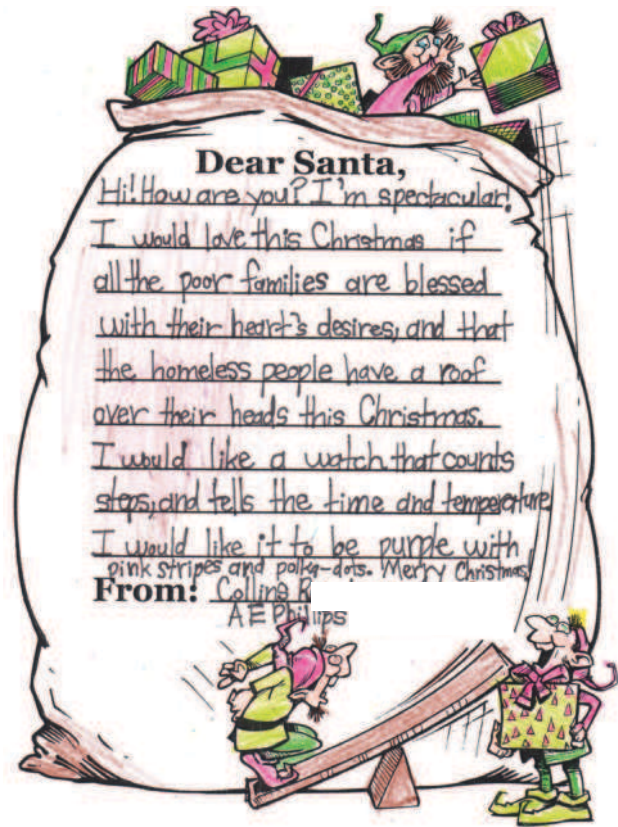 Dear Santa,
Hi! How are you? I'm spectacular!
I would love this Christmas if
all the poor families are blessed
with their heart's desires, and that
the homeless people have a roof
over their heads this Christmas.
I would like a watch that counts
steps, and tells the time and temperature
I would like it to be purple with
pink stripes and polka-dots. Merry Christmas!
From: Collins R
A E Phillips